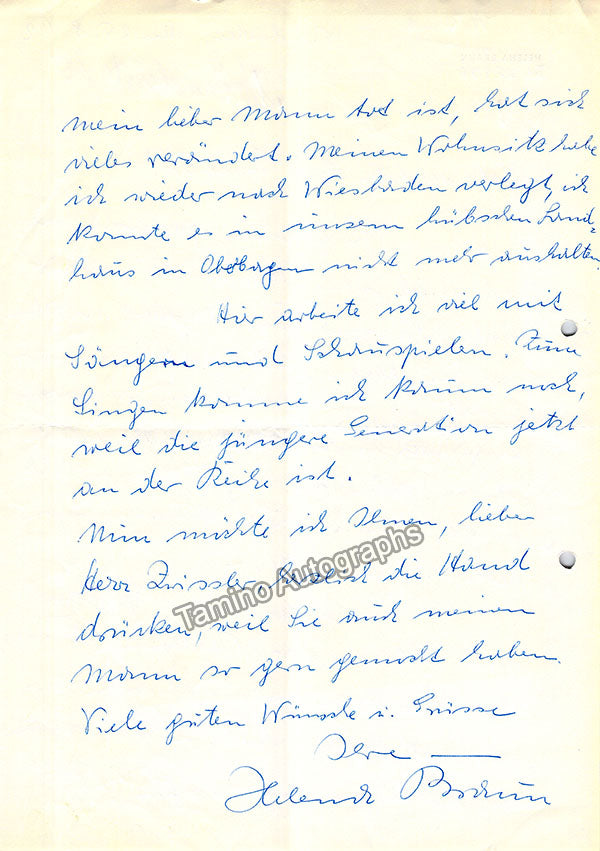 mein lieber Mann tot ist, hat sich
vieles verändert. Meinen Wohnsitz habe
ich wieder nach Wiesbaden verlegt, ich
konnte es in unserm hübschen Land=
haus in nicht mehr aushalten.
Hier arbeite ich viel mit
Sängern und Schauspielern. Zum
Singen komme ich kaum noch,
weil die jüngere Generation jetzt
an der Reihe ist.
Nun möchte ich Ihnen, lieber
Herr Zwissler, herzlich die Hand
drücken, weil Sie auch meinen
Mann so gern gemocht haben.
Viele guten Wünsche u. Grüsse
Ihre
Helena Braun
Tamino Autographs
HELENA BRAUN